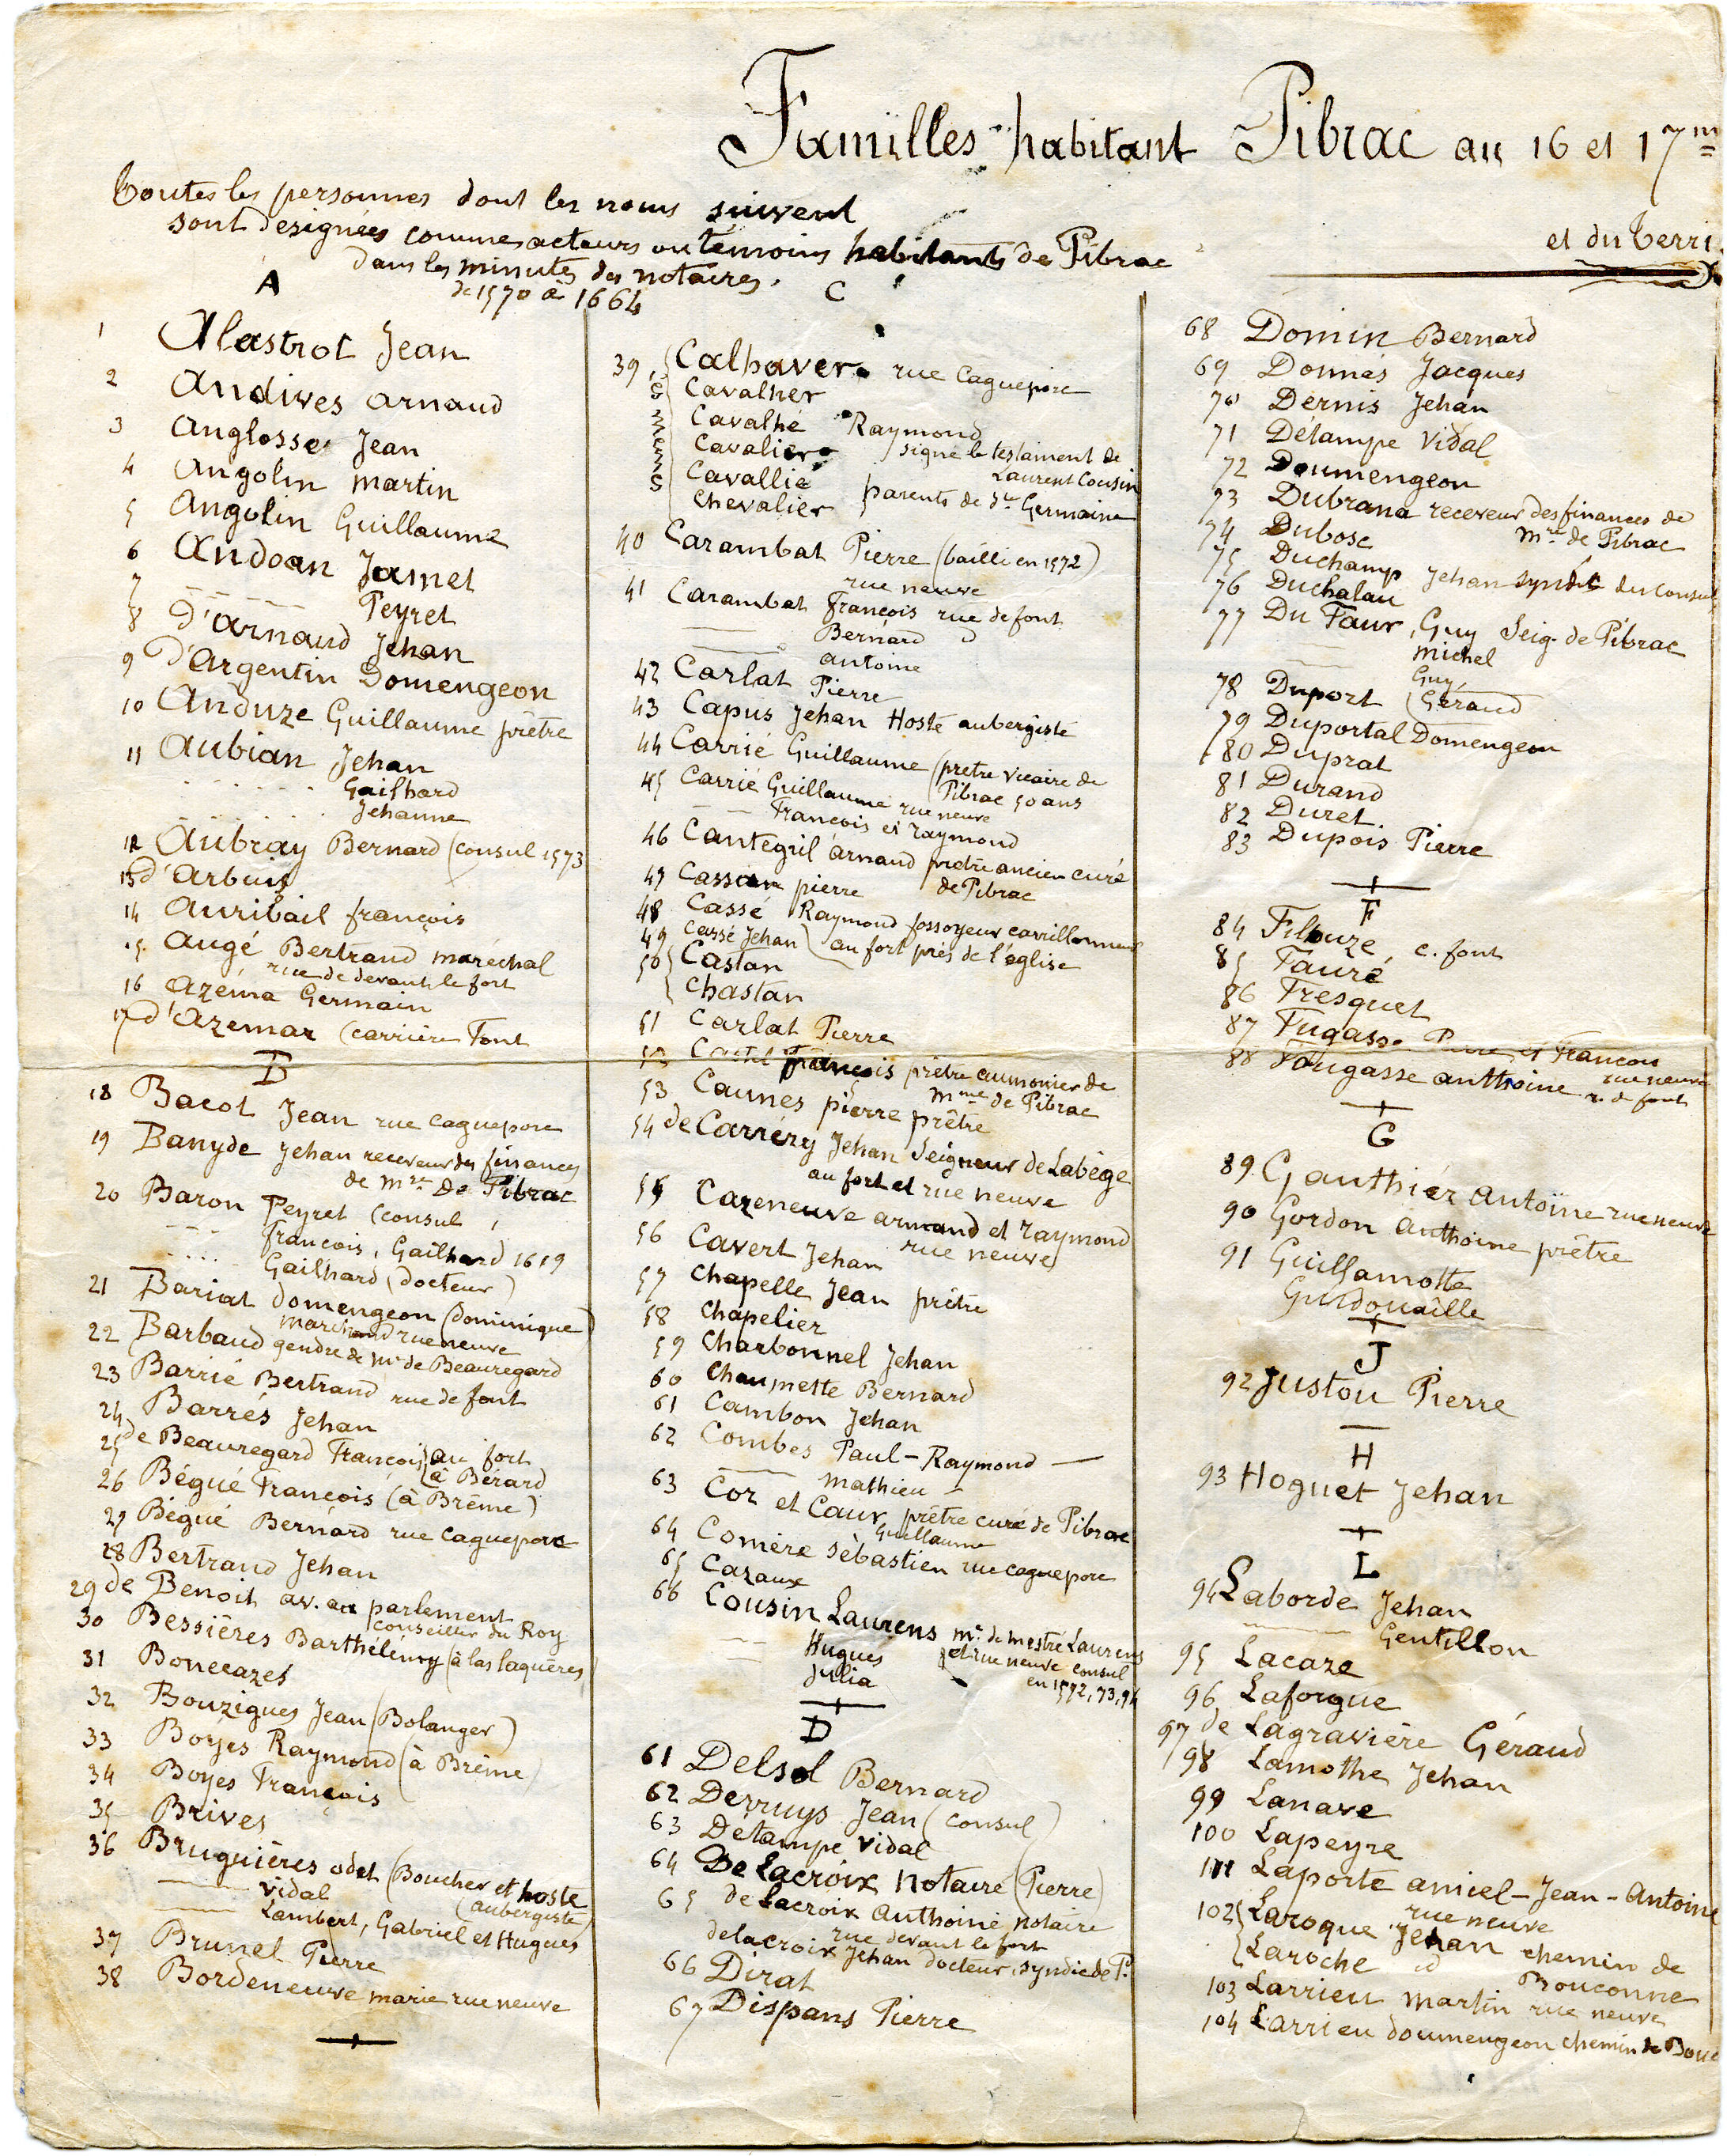 Familles habitant Pibrac au 16 et 17m
et du Terri
Toutes les personnes dont les noms suivent
sont designées comme acteurs ou témoins habitants de Pibrac
dans les minutes des notaires.
de 1570 à 1664
A
1 Alastrot Jean
2 Andives arnaud
3 Anglosse Jean
4 Angolin martin
5 Angolin Guillaume
6 Andoan Jamet
7 - - - - - Peyret
8 D'arnaud Jehan
9 D'Argentin Domengeon
10 Anduze Guillaume prêtre
11 Aubian Jehan
. . . . . Gailhard
. . . . . Jehanne
12 Aubray Bernard (consul 1573
13 d'Arbuis
14 Auribail françois
15 Augé Bertrand maréchal
rue de devant le fort
16 Azéma Germain
17 d'Azemar (carrière Font
B
18 Bacot Jean rue caguepore
19 Banyde Jehan receveur des finances
de mre de Pibrac
20 Baron Peyret (consul
- - - françois, Gailhard 1619
. . . . Gailhard (docteur)
21 Bariat domengeon (dominique)
marchand rue neuve
22 Barbaud gendre de mr de Beauregard
23 Barrié Bertrand rue de font
24 Barrés Jehan
25 de Beauregard François (au fort
(à Bérard
26 Bégué François (à Brême)
27 Bégué Bernard rue caguepore
28 Bertrand Jehan
29 de Benoit av. au parlement
conseiller du Roy
30 Bessières Barthélémy (à las laquères)
31 Bonecazes
32 Bouzigues Jean (Bolanger)
33 Boyes Raymond (à Brême)
34 Boyes François
35 Brives
36 Bruguières odet (Boucher et hoste
(aubergiste)
—— vidal
—— Lambert, Gabriel et Hugues
37 Brunel Pierre
38 Bordeneuve marie rue neuve
C
39 Calhaver rue Caguepore
Cavalher
Cavalhé Raymond
Cavalier signe le testament de
Laurent Cousin
Cavallié
Chevalier parents de Ste Germaine
mêmes
40 Carambat Pierre (bailli en 1572)
rue neuve
41 Carambat François rue de font
—— Bernard
—— antoine
42 Carlat Pierre
43 Capus Jehan Hoste aubergiste
44 Carrié Guillaume (prêtre vicaire de
Pibrac 50 ans
45 Carrié Guillaume rue neuve
—— François et raymond
46 Cantegril arnaud prêtre ancien curé
de Pibrac
47 Cassan pierre
48 Cassé Raymond fossoyeur carrillonneur
49 Cassé Jehan au fort près de l'église
50 Castan
Chastan
51 Carlat Pierre
52 Castel françois prêtre aumonier de
mme de Pibrac
53 Caunes pierre prêtre
54 de Carréry Jehan Seigneur de Labège
au fort et rue neuve
55 Cazeneuve armand et raymond
rue neuve
56 Cavert Jehan
57 Chapelle Jean prêtre
58 Chapelier
59 Charbonnel Jehan
60 Chaumette Bernard
61 Cambon Jehan
62 Combes Paul-Raymond —
—— mathieu —
63 Coz et Caux prêtre curé de Pibrac
Guillaume
64 Comère Sébastien rue caguepore
65 Cazaux
66 Cousin Laurens mr de mestré Laurens
—— Hugues et rue neuve consul
—— Julia en 1572, 73, 94
D
61 Delsol Bernard
62 Derruys Jean (consul)
63 Détampe vidal
64 De Lacroix Notaire (Pierre)
65 de Lacroix Anthoine, notaire
rue devant le fort
delacroix Jehan docteur, syndic de P.
66 Dirat
67 Dispans Pierre
68 Domin Bernard
69 Donnés Jacques
70 Dernis Jehan
71 Détampe Vidal
72 Doumengeon
73 Dubrana receveur des finances de
mre de Pibrac
74 Dubosc
75 Duchamp Jehan syndic du Consul
76 Duchalau
77 Du Faur, Guy Seig. de Pibrac
—— michel
Guy
78 Duport (Géraud
79 Duportal Domengeon
80 Duprat
81 Durand
82 Duret
83 Dupois Pierre
F
84 Filouze c. font
85 Fauré
86 Fresquet
87 Fugasse Pierre et Francois
rue neuve
88 Fougasse anthoine r. de font
G
89 Gauthier Antoine rue neuve
90 Gordon Anthoine prêtre
91 Guillamotte
Guidouaille
J
92 Juston Pierre
H
93 Hoguet Jehan
L
94 Laborde Jehan
—— Gentillon
95 Lacaze
96 Laforgue
97 de Lagravière Géraud
98 Lamothe Jehan
99 Lanave
100 Lapeyre
101 Laporte amiel-Jean-Antoine
rue neuve
102 Laroque Jehan chemin de
Laroche id Bouconne
103 Larrieu martin rue neuve
104 Larrieu doumengeon chemin de Bouc